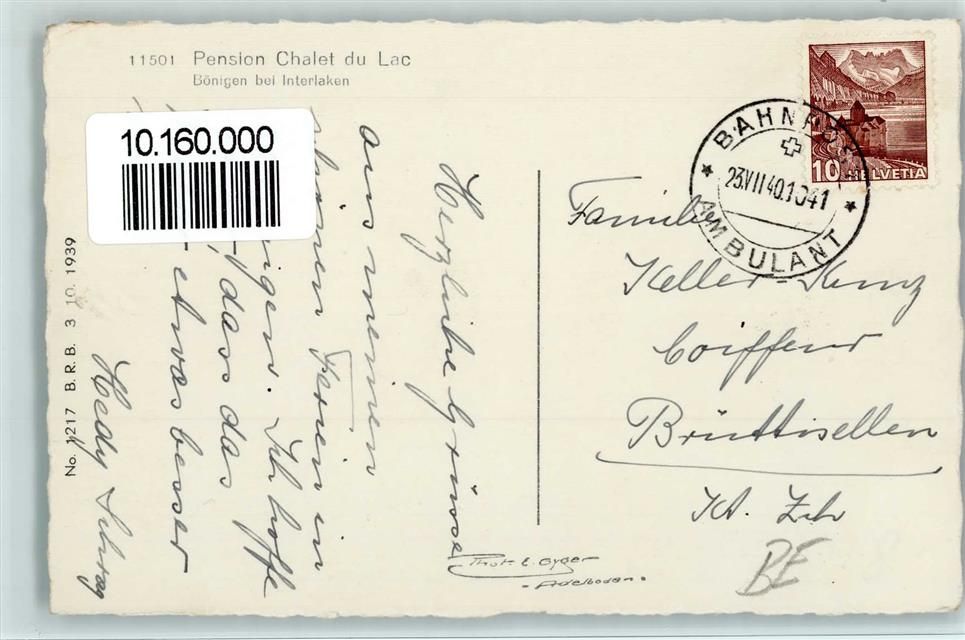 11501 Pension Chalet du Lac
Bönigen bei Interlaken
10.160.000
No. 1217 B.R.B. 3 10 1939
Herzliche Grüsse
aus meinen
schönen Ferien in
. Ich hoffe
, dass das
etwas besser
Hedy
Phot. E. Gyger
-Adelboden.
BAHNPOST
23.VII.40.1041
AMBULANT
10 HELVETIA
Familie
Keller-Kunz
Coiffeur
Brüttisellen
Kt. Zch
BE